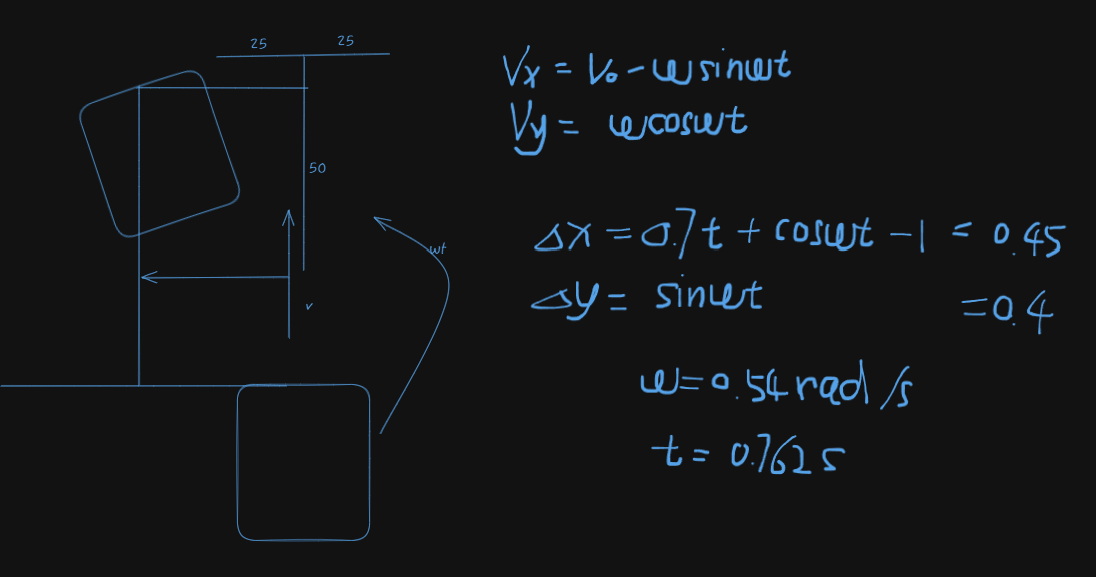 25 25
50
wt
v
Vx = V₀ - w sinwt
Vy = wcoswt
Δx = 0.7t + coswt - 1 = 0.45
Δy = sinwt = 0.4
w = 0.54 rad/s
t = 0.762 s